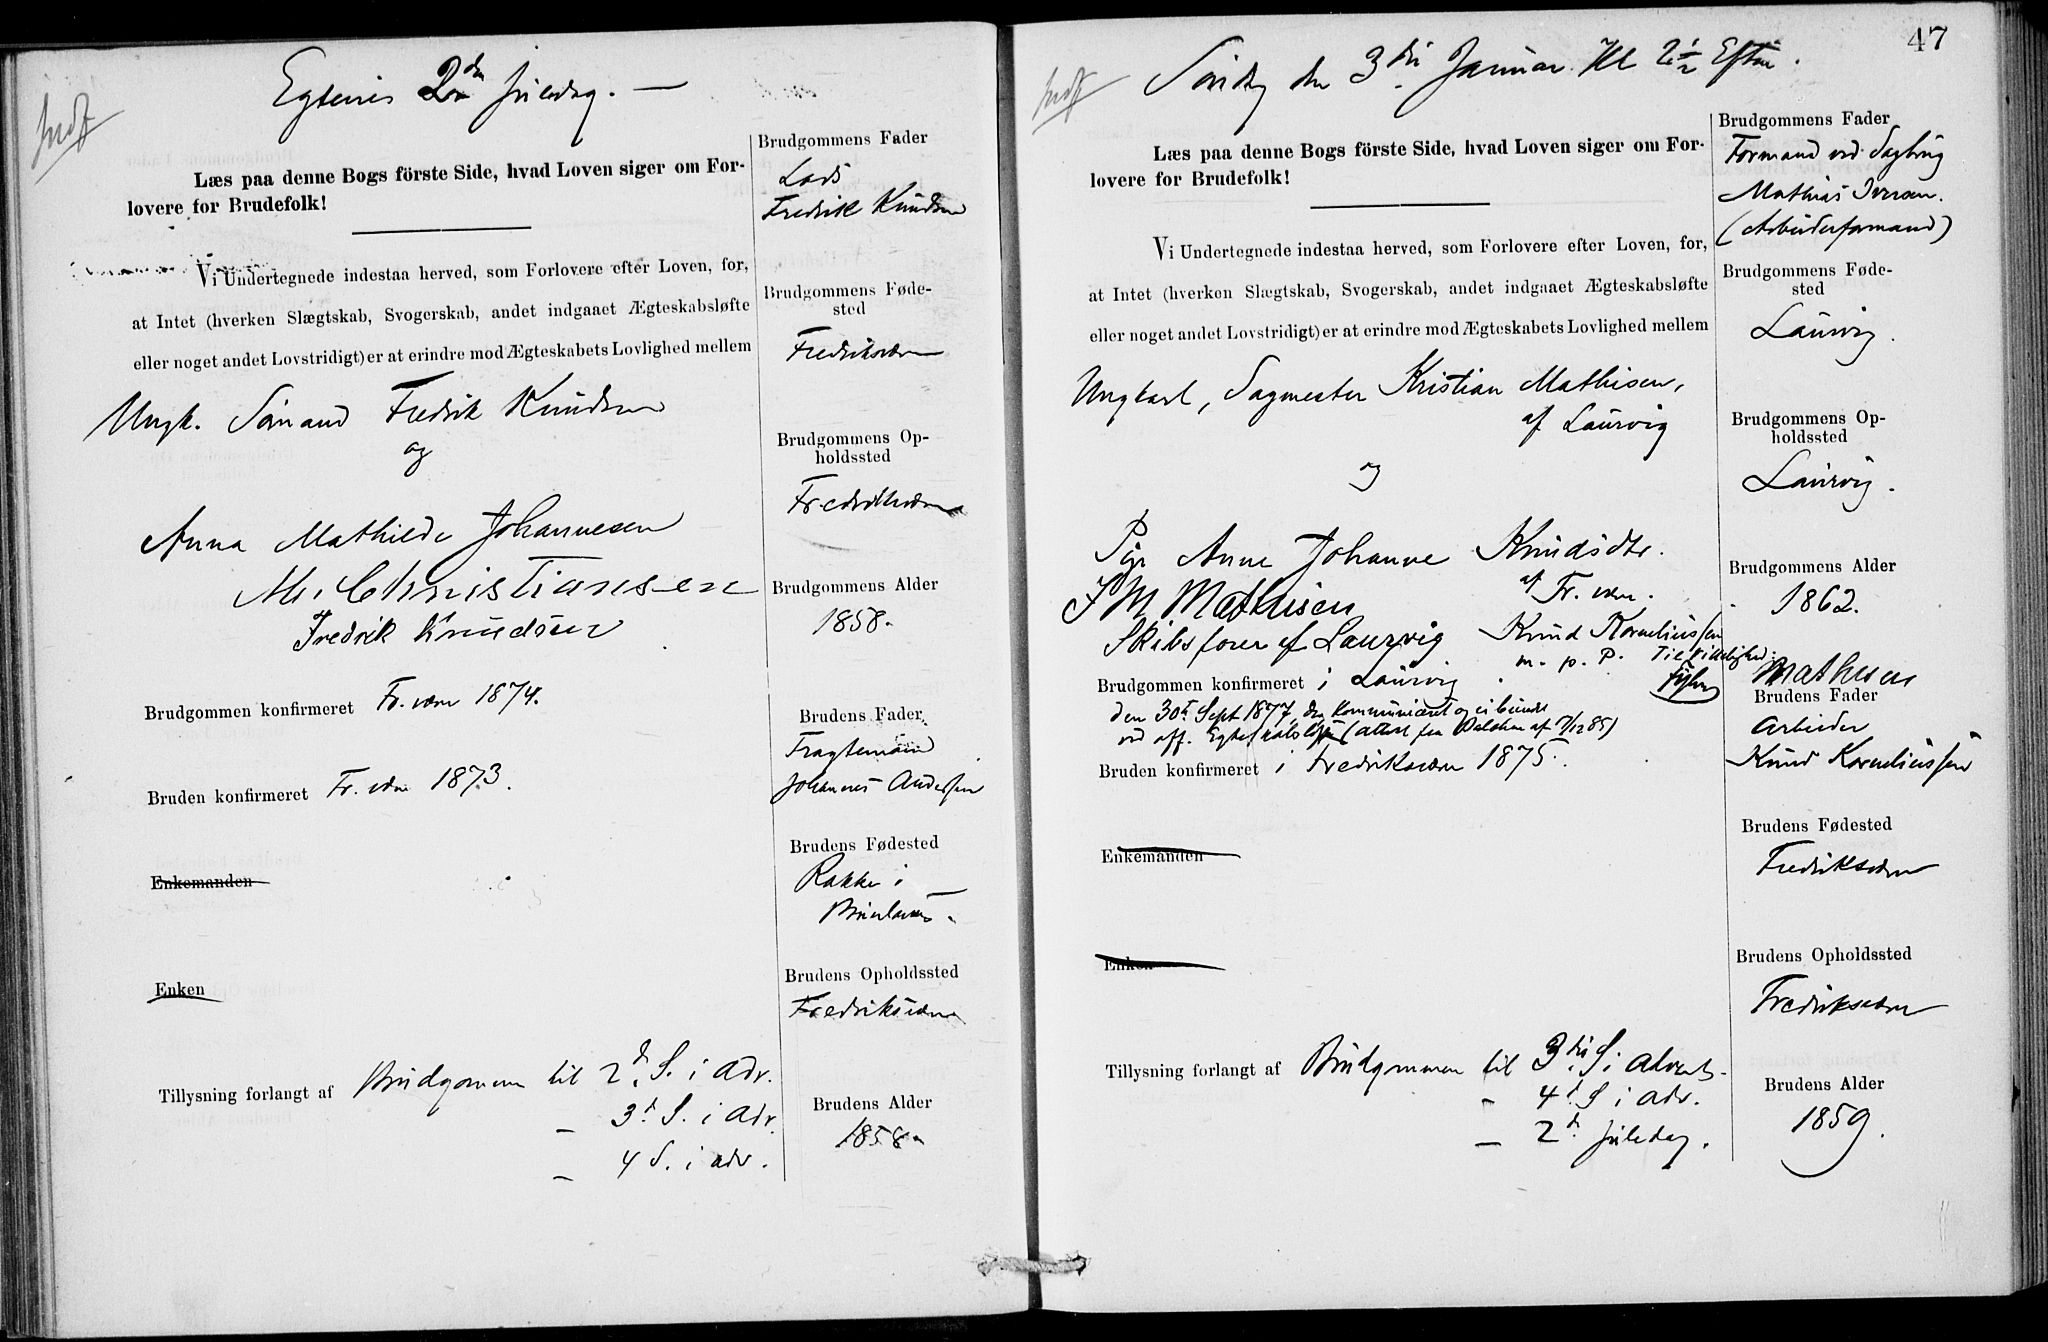 Egtevies 2den Juledag. —
indf
Læs paa denne Bogs förste Side, hvad Loven siger om For-
lovere for Brudefolk!
Vi Undertegnede indestaa herved, som Forlovere efter Loven, for,
at Intet (hverken Slægtskab, Svogerskab, andet indgaaet Ægteskabsløfte
eller noget andet Lovstridigt) er at erindre mod Ægteskabets Lovlighed mellem
Ungk. Sömand Fedrik Knudsen
og
Anna Mathilde Johannesen
M. Christiansen
Fredrik Knudsen
Brudgommen konfirmeret Fr.værn 1874.
Bruden konfirmeret Fr.værn 1873.
Enkemanden
Enken
Tillysning forlangt af Brudgommen til 2d. S. i Adv.
— 3d S. i Adv.
— 4 S. i adv.
Brudgommens Fader
Lods
Fredrik Knudsen
Brudgommens Føde-
sted
Fredriksværn
Brudgommens Op-
holdssted
Fredriksværn
Brudgommens Alder
1858.
Brudens Fader
Fragtemand
Johannes Anderssen
Brudens Fødested
Rakke i
Brunlanæs.
Brudens Opholdssted
Fredriksværn
Brudens Alder
1858.
47
Söndag den 3die Januar Kl 2½ Efterm.
indf
Læs paa denne Bogs förste Side, hvad Loven siger om For-
lovere for Brudefolk!
Vi Undertegnede indestaa herved, som Forlovere efter Loven, for,
at Intet (hverken Slægtskab, Svogerskab, andet indgaaet Ægteskabsløfte
eller noget andet Lovstridigt) er at erindre mod Ægteskabets Lovlighed mellem
Ungkarl, Sagmester Kristian Mathisen,
af Laurvig
og
Pige Anne Johanne Knudsdtr.
af Fr.værn.
J M Mathisen
Skibsförer af Laurvig Knud Korneliussen
m. p. P. Til Vitterlighed:
Mathisen
Brudgommen konfirmeret i Laurvig.
den 30t Sept 1877, kommuniceret og ei bundet
ved off. Egteskabslöfte (attest fra 7/12 85)
Bruden konfirmeret i Fredriksværn 1875.
Enkemanden
Enken
Tillysning forlangt af Brudgommen til 3die S. i Advents-
- 4d. S i Adv.
— 2d. Juledag.
Brudgommens Fader
Formand ved Sagbrug
Mathias Iversen.
(Arbeiderformand)
Brudgommens Føde-
sted
Laurvig.
Brudgommens Op-
holdssted
Laurvig.
Brudgommens Alder
1862.
Brudens Fader
Arbeider
Knud Korneliussen
Brudens Fødested
Fredriksværn
Brudens Opholdssted
Fredriksværn
Brudens Alder
1859.